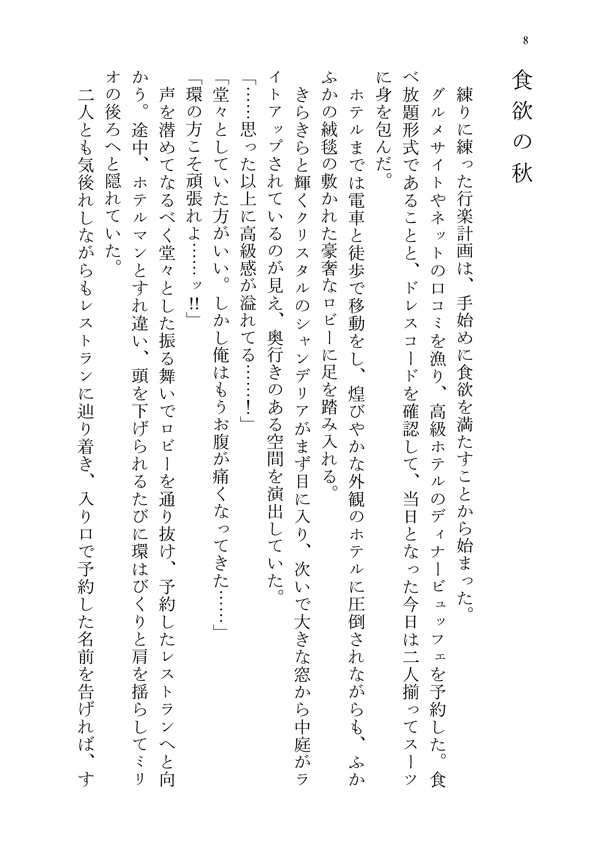 8
食欲の秋
練りに練った行楽計画は、手始めに食欲を満たすことから始まった。
グルメサイトやネットの口コミを漁り、高級ホテルのディナービュッフェを予約した。食
べ放題形式であることと、ドレスコードを確認して、当日となった今日は二人揃ってスーツ
に身を包んだ。
ホテルまでは電車と徒歩で移動をし、煌びやかな外観のホテルに圧倒されながらも、ふか
ふかの絨毯の敷かれた豪奢なロビーに足を踏み入れる。
きらきらと輝くクリスタルのシャンデリアがまず目に入り、次いで大きな窓から中庭がラ
イトアップされているのが見え、奥行きのある空間を演出していた。
「……思った以上に高級感が溢れてる……！」
「堂々としていた方がいい。しかし俺はもうお腹が痛くなってきた……」
「環の方こそ頑張れよ……ッ!!」
声を潜めてなるべく堂々とした振る舞いでロビーを通り抜け、予約したレストランへと向
かう。途中、ホテルマンとすれ違い、頭を下げられるたびに環はびくりと肩を揺らしてミリ
オの後ろへと隠れていた。
二人とも気後れしながらもレストランに辿り着き、入り口で予約した名前を告げれば、す